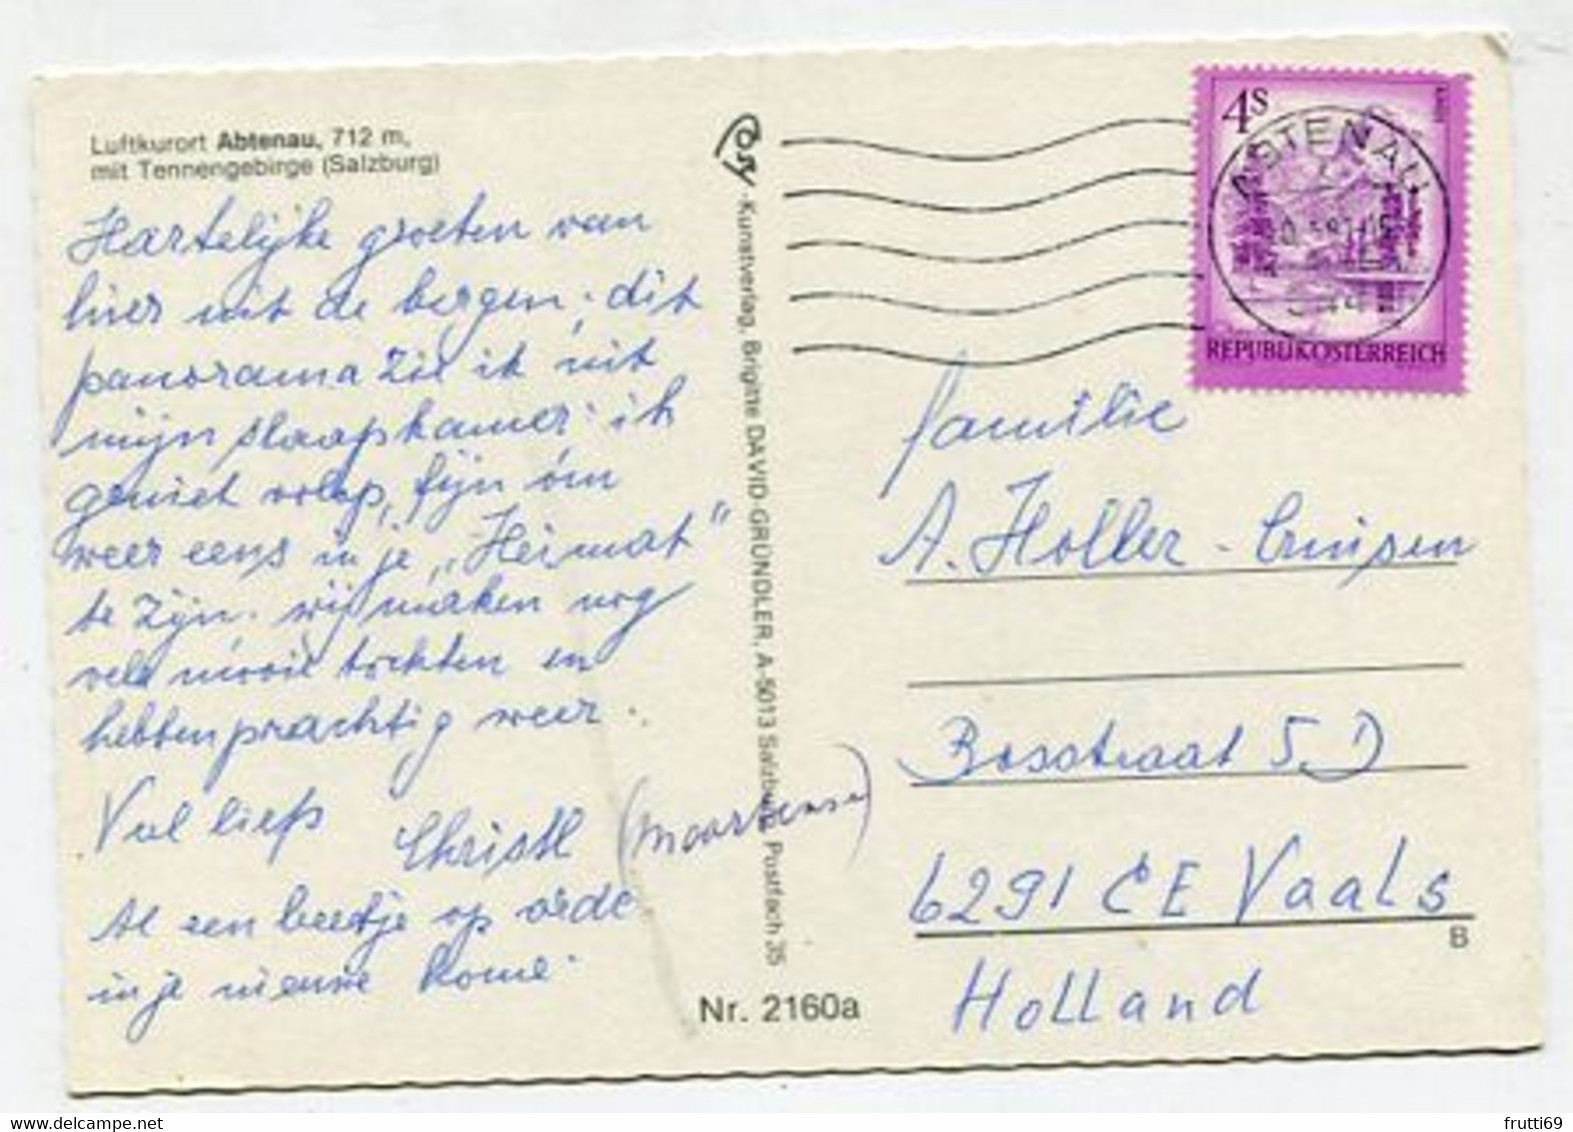 Luftkurort Abtenau, 712 m,
mit Tennengebirge (Salzburg)
Hartelijke groeten van
hier uit de bergen, dit
panorama zie ik uit
mijn slaapkamer. ik
geniet volop, fijn om
weer eens in je „Heimat"
te zijn. wij maken nog
vele mooie tochten en
hebben prachtig weer.
Veel liefs
Christl
Al een beetje op orde
in je nieuwe
Kunstverlag, Brigitte DAVID-GRÜNDLER, A-5013 Salzburg, Postfach 35
Nr. 2160a
4S
REPUBLIK ÖSTERREICH
ABTENAU
5441
familie
A. Holler - Cruysen
Bosstraat 5.D
6291 CE Vaals
B
Holland
frutti69
www.delcampe.net